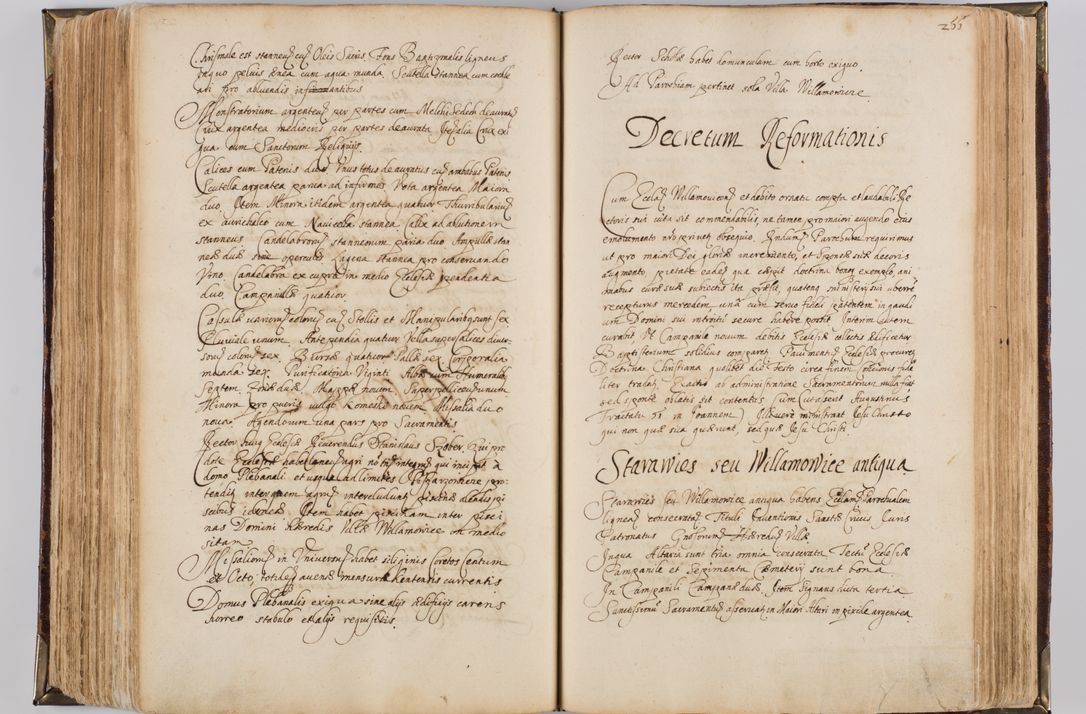 Chrismale est stanneū cū Oleis Sacris. Fons Baptizmalis ligneus
in quo pelvis ænea cum aqua munda. Scutella stannea cum
adi pro abluendis infantibus
Monstratorium argenteū per partes cum Melchisedech deauratū
crux argentea mediocris per partes deaurata. Itē alia Crux exi
gua cum Sanctorum Reliquijs.
Calices cum Patenis duo. Unus totus deauratus cū ambabus Patenis
Scutella argentea parva ad infirmos Vota argentea Maiora
duo, Item Minora itidem argentea quatuor Thurribularium
ex aurichalco cum Navicella stannea Calix ad ablutionem
stanneus Candelabrorū stanneorum paria duo Ampullæ stan
neæ duæ sine operculis Lagena stannea pro conservando
Vino. Candelabra ex cupro in medio Ecclesiæ pendentia
duo, Campanulæ quatuor
Casulæ variorū colorū cū Stollis et Manipularibus sunt sex
Pluviale unum. Antependia quatuor Vella super calices diver
sorū colorū sex. Bursæ quatuor Pallæ sex Corporalia
munda sex. Purificatoria Viginti Albæ cum Humeralib
Septem Zonæ duæ. Mappæ novem Superpelliceū unum
Minora pro pueris vulgo Komeshe novem, Missalia duo
nova, Agendorum una pars pro Sacramentis.
Rector huius Ecclesiæ Reverendus Stanislaus Szober, qui præ
dictæ Ecclesiæ habet laneū agri no integrū qui incipit a
domo Plebanali et usque ad limites Pisarzoviene pro
tendit inter quem agrū intercludunt
Item habet piscinam inter pisci
nas Domini Hæredis Villæ Willamowice in medio
sitam
Missalium in Universū habet siliginis Coretos Centum
et Octo, totidē avenæ mensuræ Kentensis currentis
Domus Plebanalis exigua sine alijs Ædificijs carens
horreo stabulo et alijs requisitis.
255
Rector Scholæ habet domunculam cum horto exiguo.
Ad Parochiam pertinet sola Villa Willamowiene.
Decretum Reformationis
Cum Ecclā Willamovicen̄ et debito ornatu compta et laudabilis Re
ctoris sui vita sit commendabilis, ne tamen pro maiori augendo eius
emolumento nrō privet obsequio, Eundem Parochum requirimus
ut pro maiori Dei gloriæ incremento, et Sponsæ suæ decoris
augmento, pietate eadē qua cæpit doctrina bonoq exemplo, ani
mabus curæ suæ subiectis ita prælit, quatenq ministerij sui uberē
recepturus mercedem unā cum servo fideli patentem in gaudi
um Domini sui introitū secure habere possit Interim autem
curabit Ut Campanile novum debitis Ecclesiæ collectis ædificetur
Baptisterium solidius comparet, Pavimentū Ecclesiæ procuret
Doctrina Christiana quolibet die festo circa finem Concionis fide
liter tradat, Exactio ab administratione Sacramentorum nulla fiat
sed sponte oblatis sit contentus (cum Curaserit Augustinus
Tractatu 51 in Joannem) Ille vere ministrat Jesu Christo
qui non quæ sua quærunt, sed quæ Jesu Christi.
Starawies seu Willamowice antiqua
Starawies seu Willamowice antiqua habens Ecclam Parochialem
ligneā consecratā Tituli Inventionis Sanctæ Crucis Juris
Patronatus Gnosorum Hæredū Villæ
In qua Altaria sunt tria omnia consecrata Tectū Ecclesiæ
Campanile et Segimenta Cœmeterij sunt bona
In Campanili Campanæ duæ. Item Signans dicta tertia
Sanctissimū Sacramentū asservat in Maiori Altari in pixide argentea